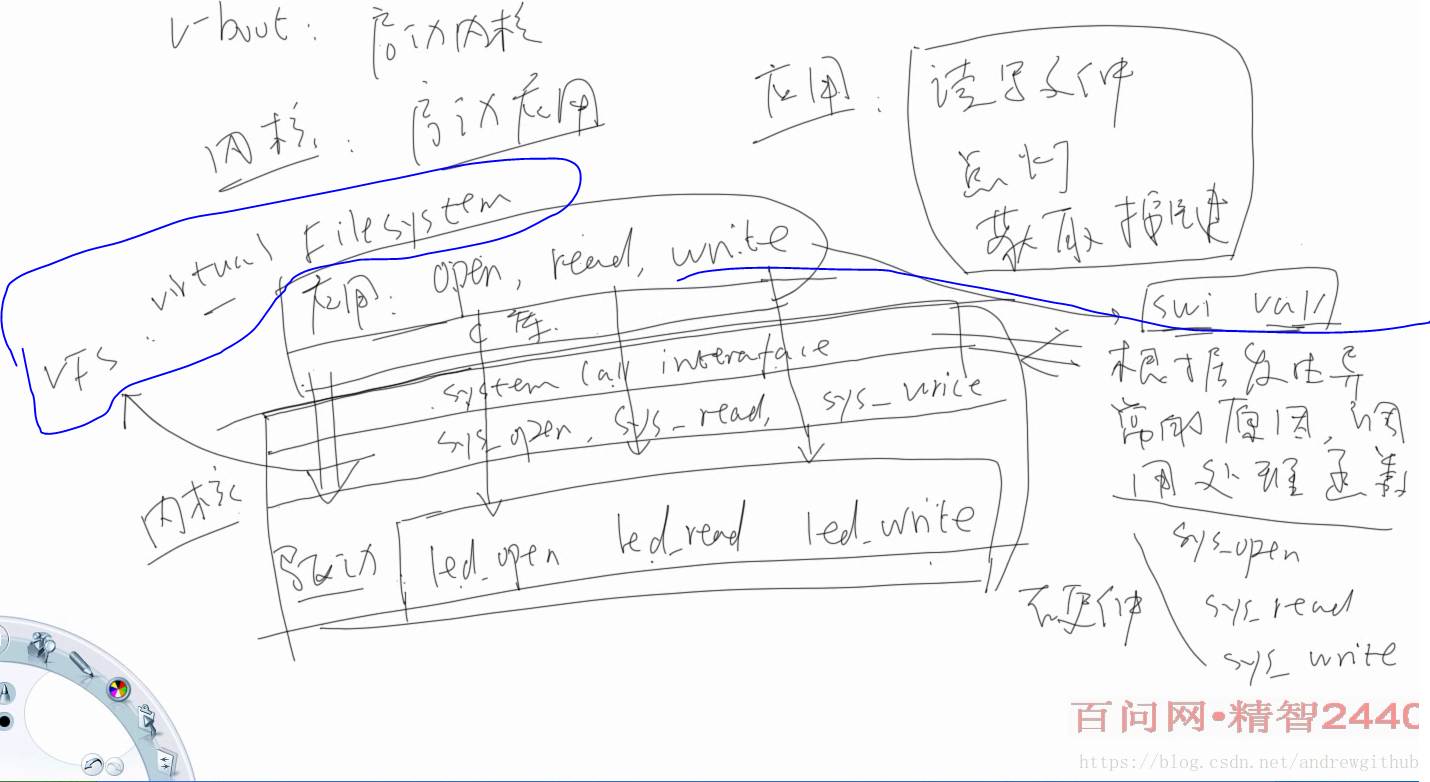 u-boot: 启动内核
内核: 启动应用
应用:
读写文件
点灯
获取按键
VFS: virtual Filesystem
应用: open, read, write
C库
swi val
system call interface
sys_open, sys_read, sys_write
根据发生异
常的原因, 调
用处理函数
内核
驱动 led_open led_read led_write
sys_open
sys_read
sys_write
硬件
百问网•精智2440
https://blog.csdn.net/andrewgithub